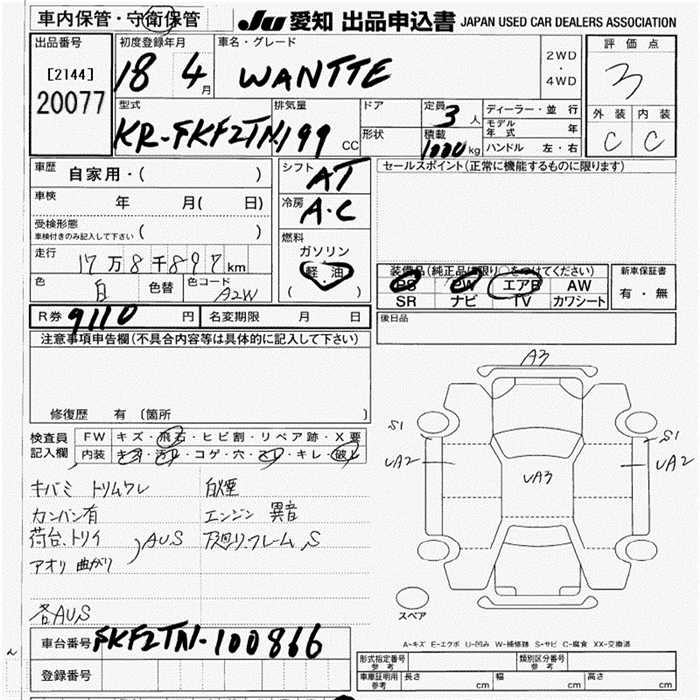 車内保管・守衛保管
JU 愛知 出品申込書 JAPAN USED CAR DEALERS ASSOCIATION
出品番号 初度登録年月 車名・グレード 2WD ・ 4WD 評価点
[2144] 18 4月 WANTTE 3
20077
型式 排気量 ドア 定員 3人 ディーラー・並行 外装 内装
KR-FKF2TN 199 CC 形状 積載 1000 kg モデル年式 年 C C
ハンドル 左・右
車歴 自家用・( ) シフト AT セールスポイント(正常に機能するものに限ります)
車検 年 月( 日) 冷房 A・C
受検形態 ( )
車検付きのみ記入して下さい
燃料 ガソリン
走行 17万8千897km 軽・油 装備品(純正品に限り○をつけてください) 新車保証書
色 白 色替 色コード A2W ( ) PS PW エアB AW 有・無
SR ナビ TV カワシート
R券 9110 円 名変期限 月 日 後日品
注意事項申告欄(不具合内容等は具体的に記入して下さい)
修復歴 有 〔箇所 〕
検査員 FW キズ・飛石・ヒビ割・リペア跡・X要
記入欄 内装 キズ・汚れ・コゲ・穴・スレ・キレ・破れ
キバミ トリムワレ 白煙
カンバン有 エンジン 異音
荷台、トリイ AUS 下廻り、フレーム、S
アオリ 曲がり
各AUS
A3
S1 S1
UA2 UA2
UA3
スペア
A-キズ E-エクボ U-凹み W-補修跡 S-サビ C-腐食 XX-交換済
車台番号 FKF2TN-100866
登録番号
形式指定番号 参考 類別区分番号 参考
車庫証明用 参考 長さ cm 幅 cm 高さ cm